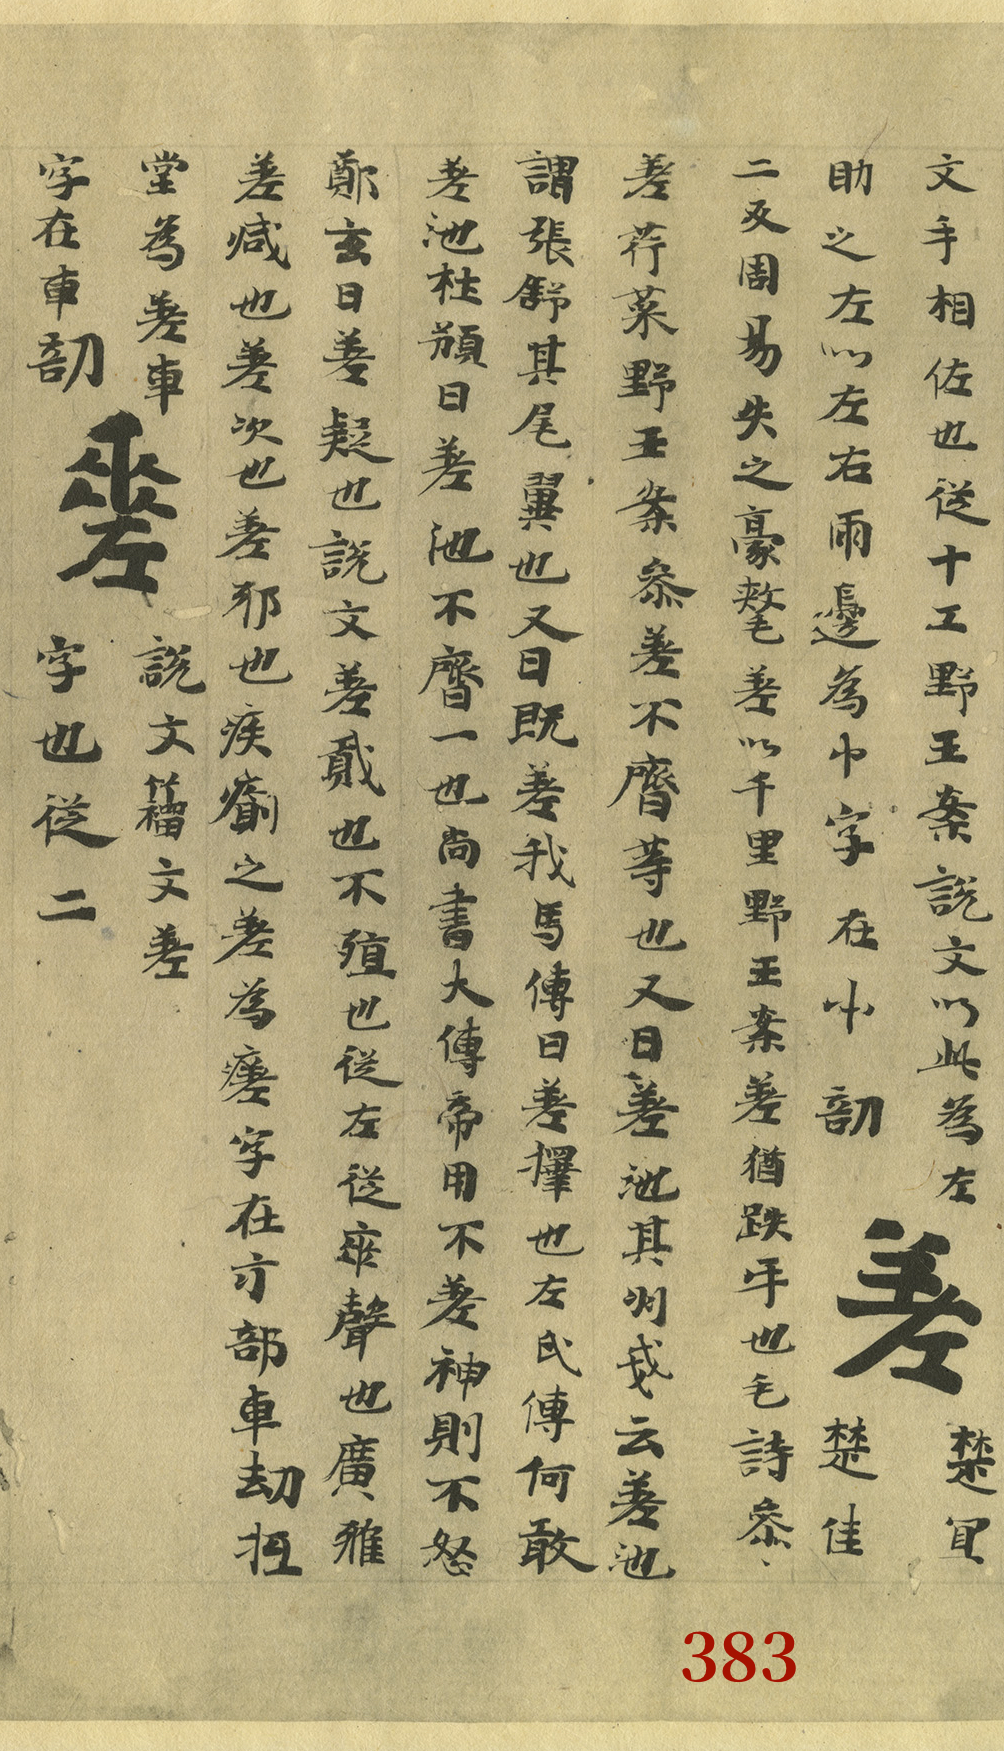 文手相佐也従十工野王案說文以此為左
助之左以左右兩邊為巾字在巾部 差 楚冝楚佳
二反周易失之豪氂差以千里野王案差猶跌也毛詩叅
差荇菜野王案叅差不齊等也又曰差池其羽戔云差池
謂張舒其尾翼也又曰既差我馬傳曰差擇也左氏傳何敢
差池杜預曰差池不齊一也尚書大傳帝用不差神則不怒
鄭玄曰差疑也說文差貳也不殖也従左従𠂹聲也廣雅
差減也差次也差邪也疾瘉之差為瘥字在疒部車劫拯
堂為差車 說文籀文差
字在車部 𢀩 字也従二
383